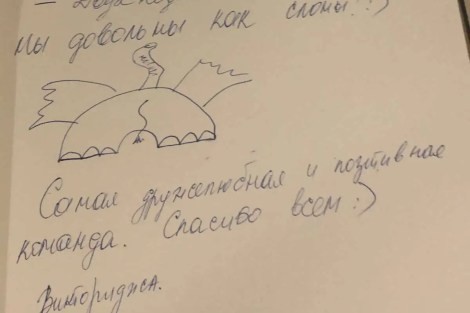 Мы довольны как слоны! :)
Самая дружелюбная и позтивная
команда. Спасибо всем :)
Викториджа.